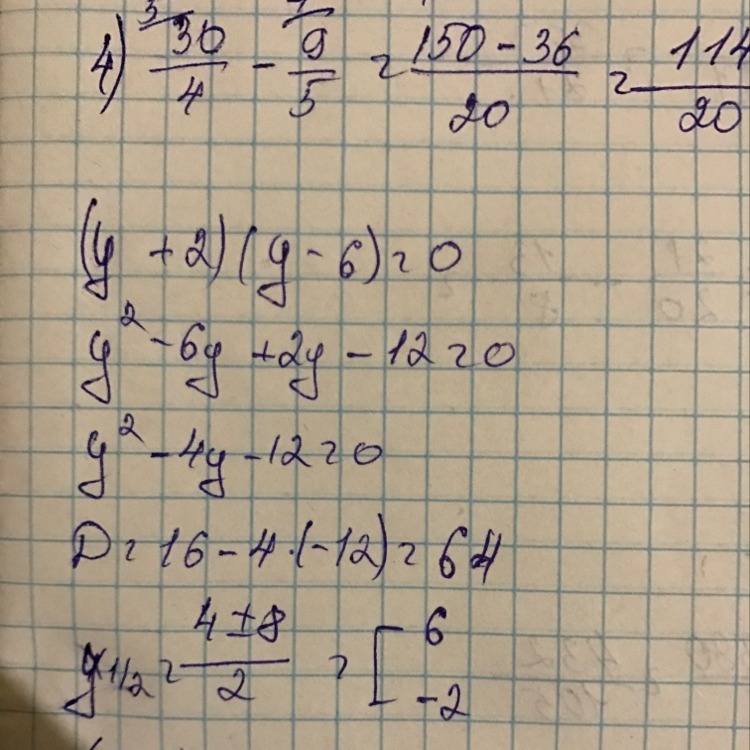 4) 30/4 - 9/5 = 150 - 36/20 = 114/20
(y + 2)(y - 6) = 0
y² - 6y + 2y - 12 = 0
y² - 4y - 12 = 0
D = 16 - 4·(-12) = 64
y1/2 = 4 ± 8/2 = [6
-2